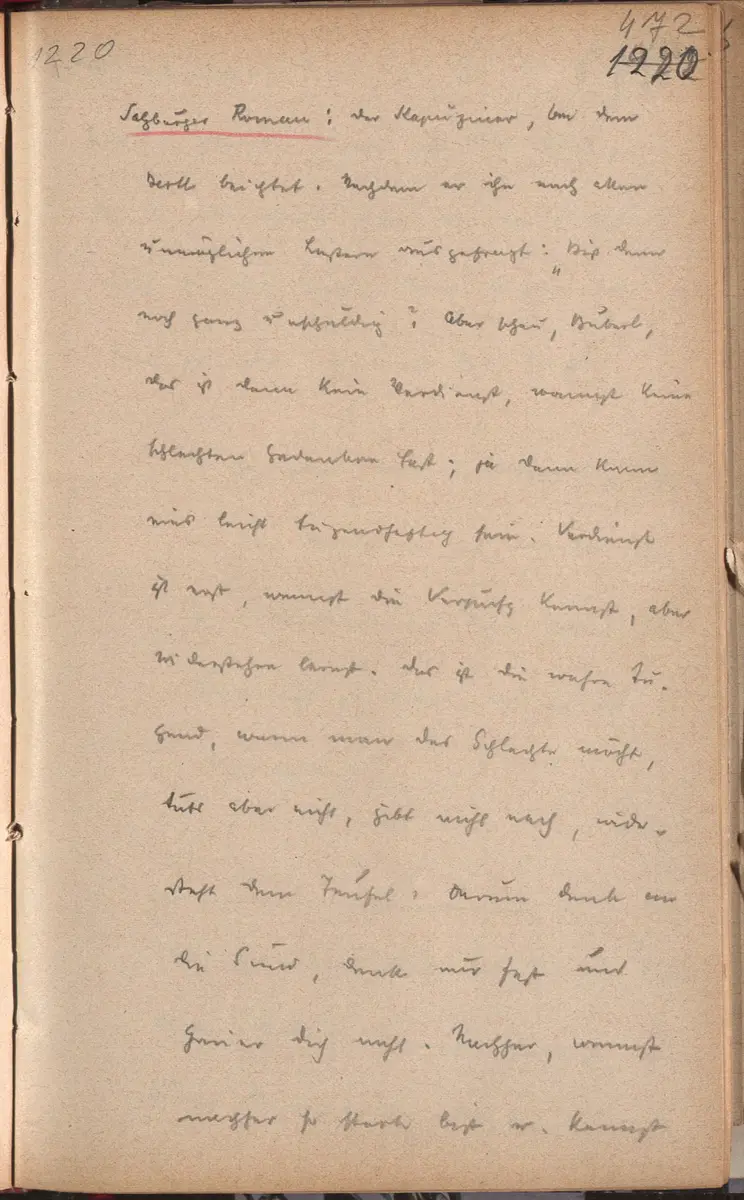 1220
472
1220
Salzburger Roman: der Kapuziner, bei dem
beichtet. Nachdem er ihn nach allen
unmöglichen Lastern ausgefragt: „Bist denn
noch ganz unschuldig? Aber schau, Buberl,
das ist denn kein Verdienst, wannst keine
schlechten Gedanken hast; ja dann kann
eins leicht tugendhaftig sein. Verdienst
ist erst, wennst die Versuchg kennst, aber
widerstehen lernst. Das ist die wahre Tu-
gend, wenn man das Schlechte möcht,
tuts aber nicht, gibt nicht nach, wider-
steht dem Teufel. Darum denk an
die Sünd, denk nur fest und
genier dich nicht. Nachher, wannst
nachher so stark bist u. kannst